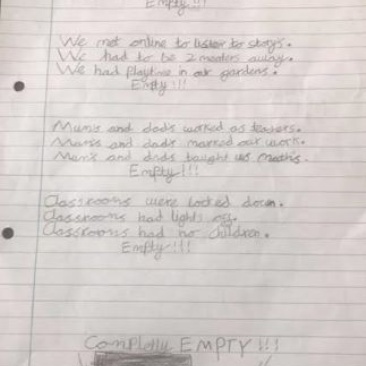 Empty!!!
We met online to listen to storys.
We had to be 2 meaters away.
We had playtime in our gardens.
Empty!!!
Mums and dads worked as teachers.
Mums and dads marked our work.
Mum's and dads taught us maths.
Empty!!!
Classrooms were locked down.
Classrooms had lights off.
Classrooms had no children.
Empty!!!
Completly EMPTY!!!